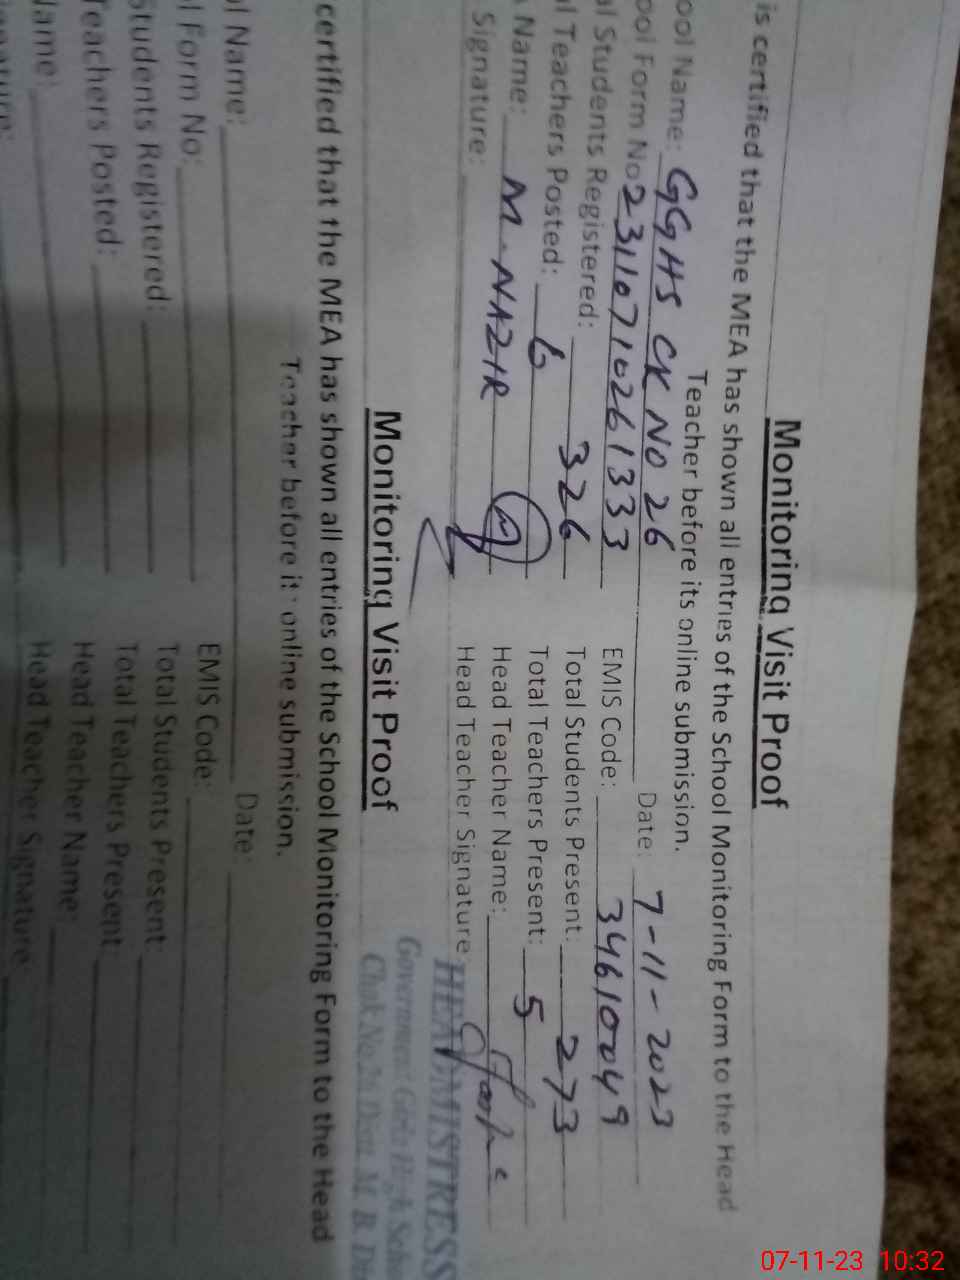 Monitoring Visit Proof
is certified that the MEA has shown all entries of the School Monitoring Form to the Head
Teacher before its online submission.
ool Name: GGHS CK NO 26 Date: 7-11-2023
ool Form No 23110710261333 EMIS Code: 34610049
al Students Registered: 326 Total Students Present: 273
l Teachers Posted: 6 Total Teachers Present: 5
Name: M. NAZIR Head Teacher Name:
Signature: Head Teacher Signature
HEADMISTRESS
Government Girls High Scho
Chak No. 26 Distt. M. B. Di
Monitoring Visit Proof
certified that the MEA has shown all entries of the School Monitoring Form to the Head
Teacher before its online submission.
l Name: Date:
l Form No: EMIS Code:
Students Registered: Total Students Present:
Teachers Posted: Total Teachers Present:
Name: Head Teacher Name:
Head Teacher Signature
07-11-23 10:32